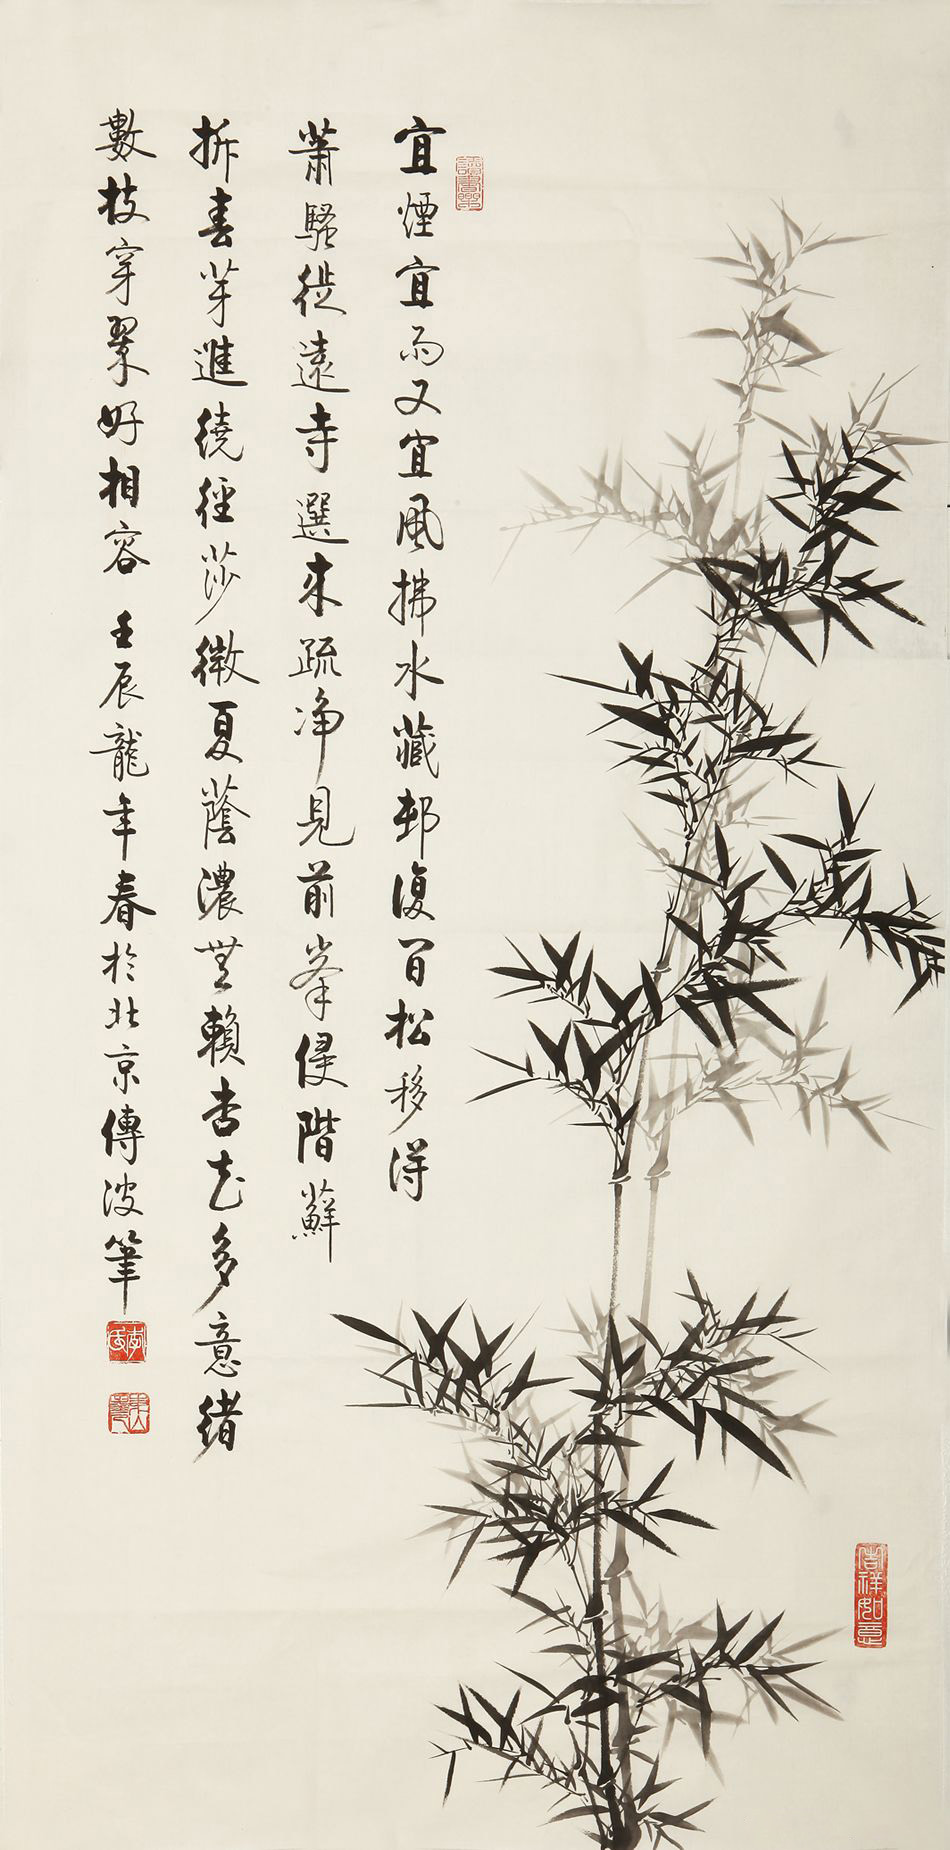 讀書樂
宜煙宜雨又宜風拂水藏邨復間松移得
蕭騷從遠寺選來疏净見前峯侵階蘚
拆春芽進繞徑莎微夏蔭濃無賴杏花多意緒
數枝穿翠好相容 壬辰龍年春於北京傳波筆
李氏
吉祥如意